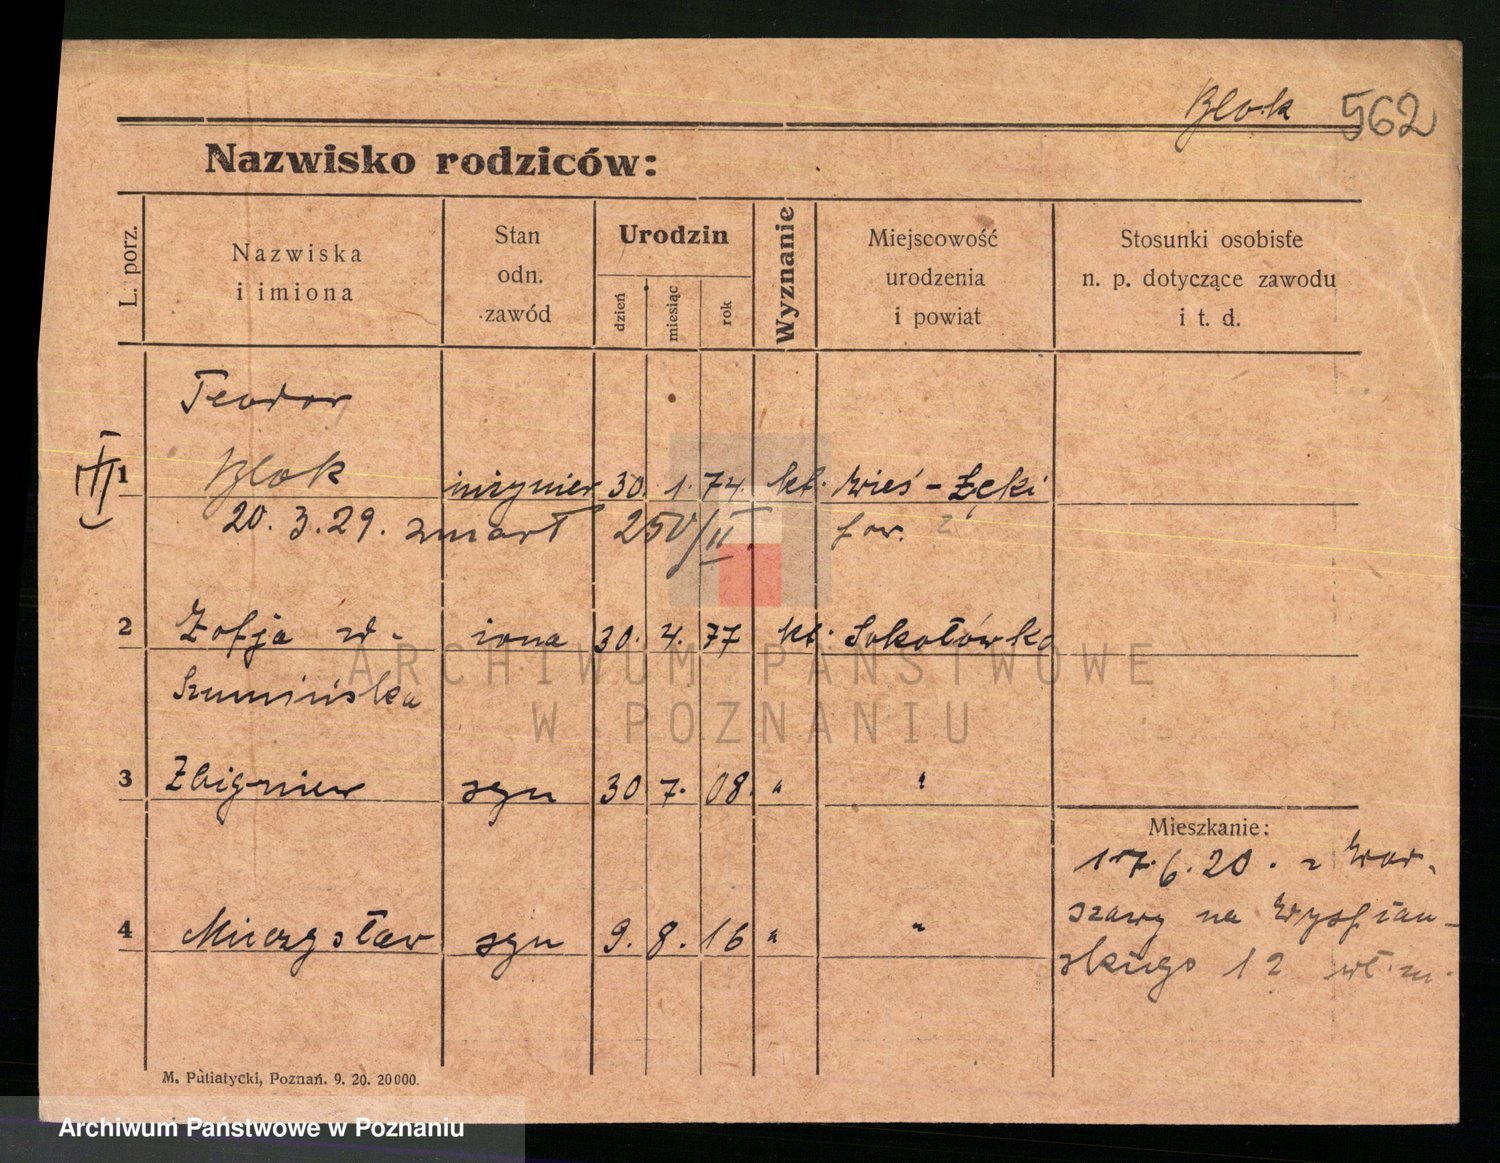 Blok 562
Nazwisko rodziców:
L. porz.
Nazwiska
i imiona
Stan
odn.
zawód
Urodzin
dzień
miesiąc
rok
Wyznanie
Miejscowość
urodzenia
i powiat
Stosunki osobiste
n. p. dotyczące zawodu
i t. d.
Teodor
1 Blok inżynier 30. 1. 74. kt. Wieś - Łęki
20. 3. 29. zmarł 250/II. pow.
2 Zofja żona 30. 4. 77 kt. Sokołówka
Szumińska
3 Zbigniew syn 30 7. 08. " "
Mieszkanie:
17. 6. 20. z War-
4 Mieczysław syn 9. 8. 16 " "
szawy na Wyspiań-
skiego 12 wł. m.
M. Putiatycki, Poznań. 9. 20. 20000.
ARCHIWUM PAŃSTWOWE
W POZNANIU
Archiwum Państwowe w Poznaniu